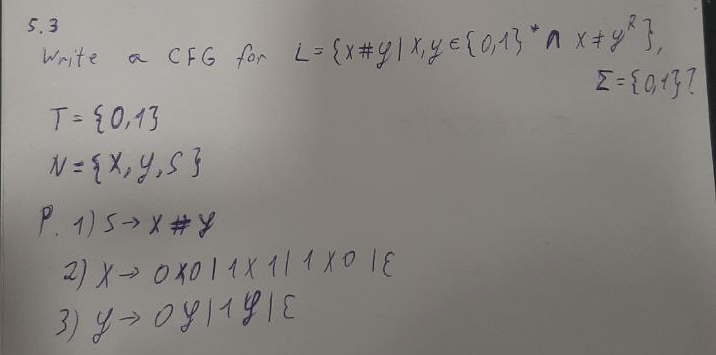 5.3
Write a CFG for L={x#y|x,y∈{0,1}*∩ x≠y^R},
Σ={0,1}?
T={0,1}
N={X,Y,S}
P. 1) S→X#Y
2) X→0X0|1X1|1X0|ε
3) Y→0Y|1Y|ε